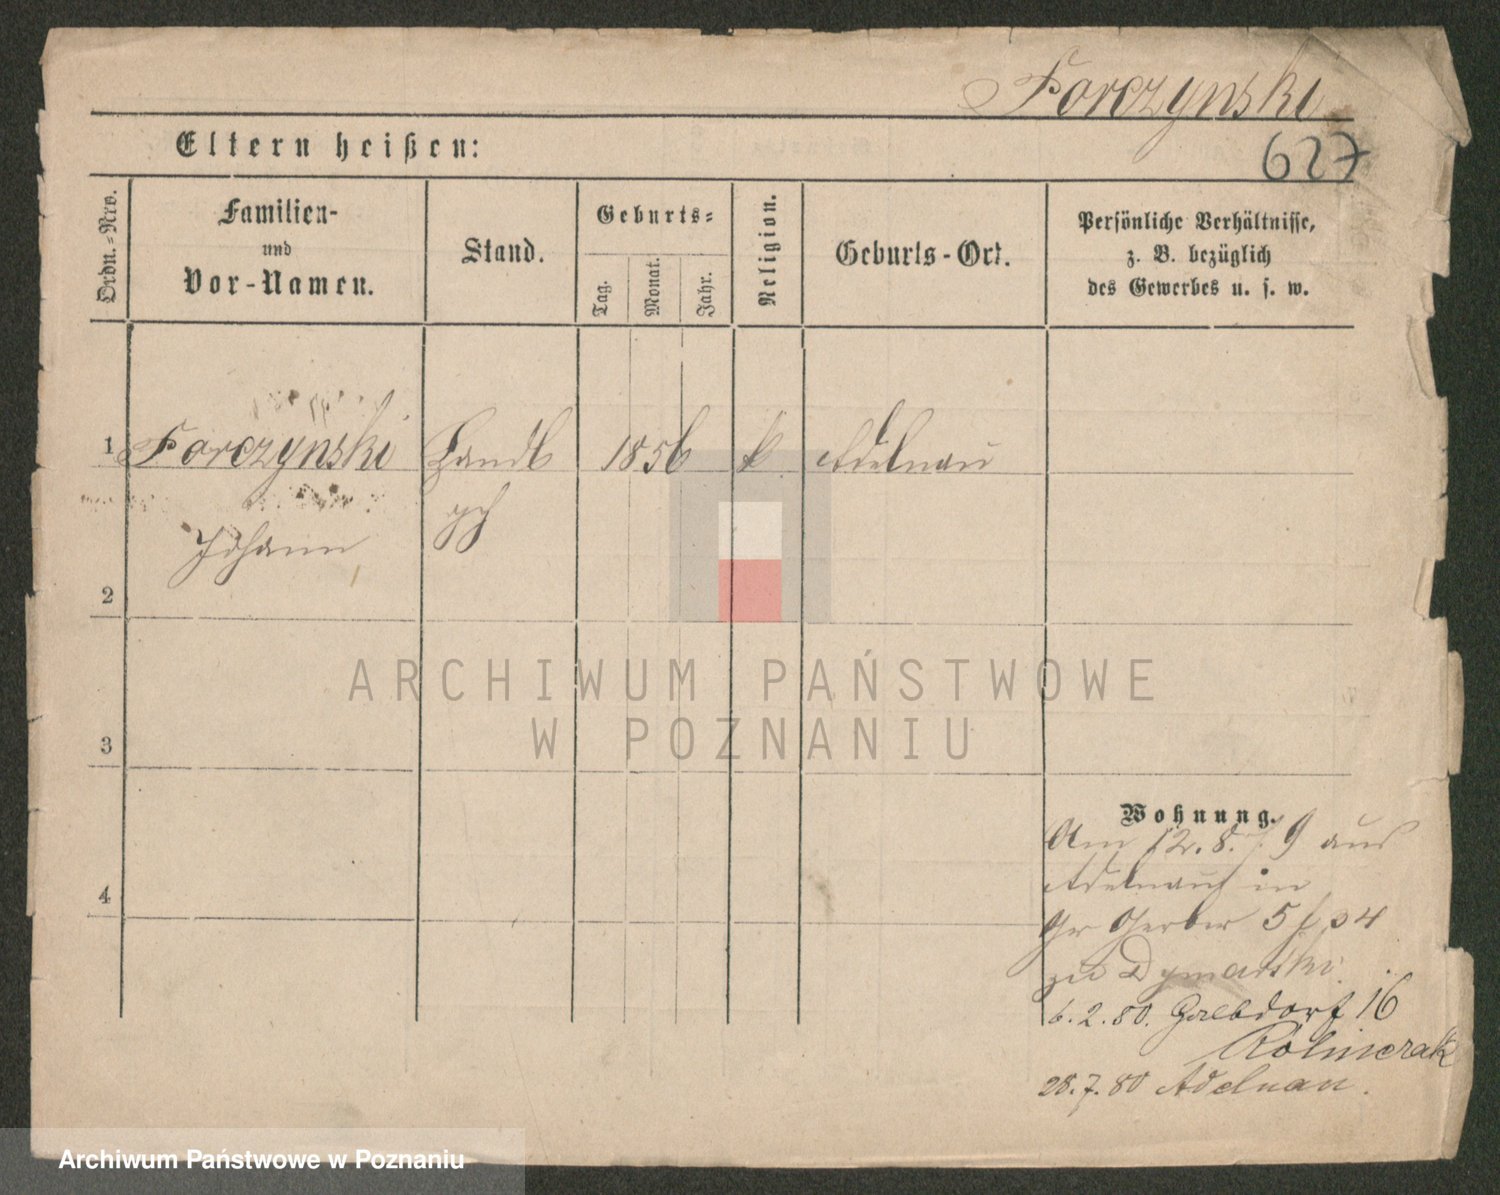 Forczynski
Eltern heißen:
627
Ordn.-Nro.
Familien-
und
Vor-Namen.
Stand.
Geburts-
Tag.
Monat.
Jahr.
Religion.
Geburts-Ort.
Persönliche Verhältnisse,
z. B. bezüglich
des Gewerbes u. s. w.
1 Forczynski Handl 1856 k Adelnau
gh
Johann
2
ARCHIWUM PAŃSTWOWE
W POZNANIU
3
Wohnung.
Am 12.8.79 aus
4
Adelnau in
Gr Gerber 5 34
zu Dymarski
6.2.80. 16
28.7.80 Adelnau.
Archiwum Państwowe w Poznaniu